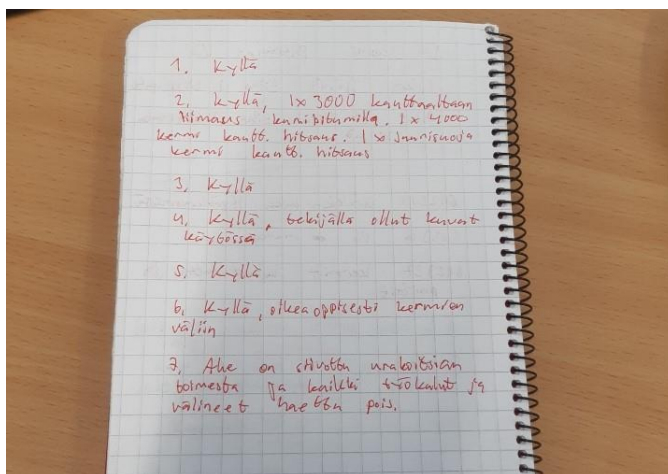 1. Kyllä
2. Kyllä, 1x 3000 kauttaaltaan
liimaus kumibitumilla. 1x 4000
kermi kautt. hitsaus. 1x juurisuoja
kermi kautt. hitsaus
3. Kyllä
4. Kyllä, tekijällä ollut kuvat
käytössä
5. Kyllä
6. Kyllä, oikeaoppisesti kermien
väliin
7. Alue on siivottu urakoitsian
toimesta ja kaikki työkalut ja
välineet haettu pois.